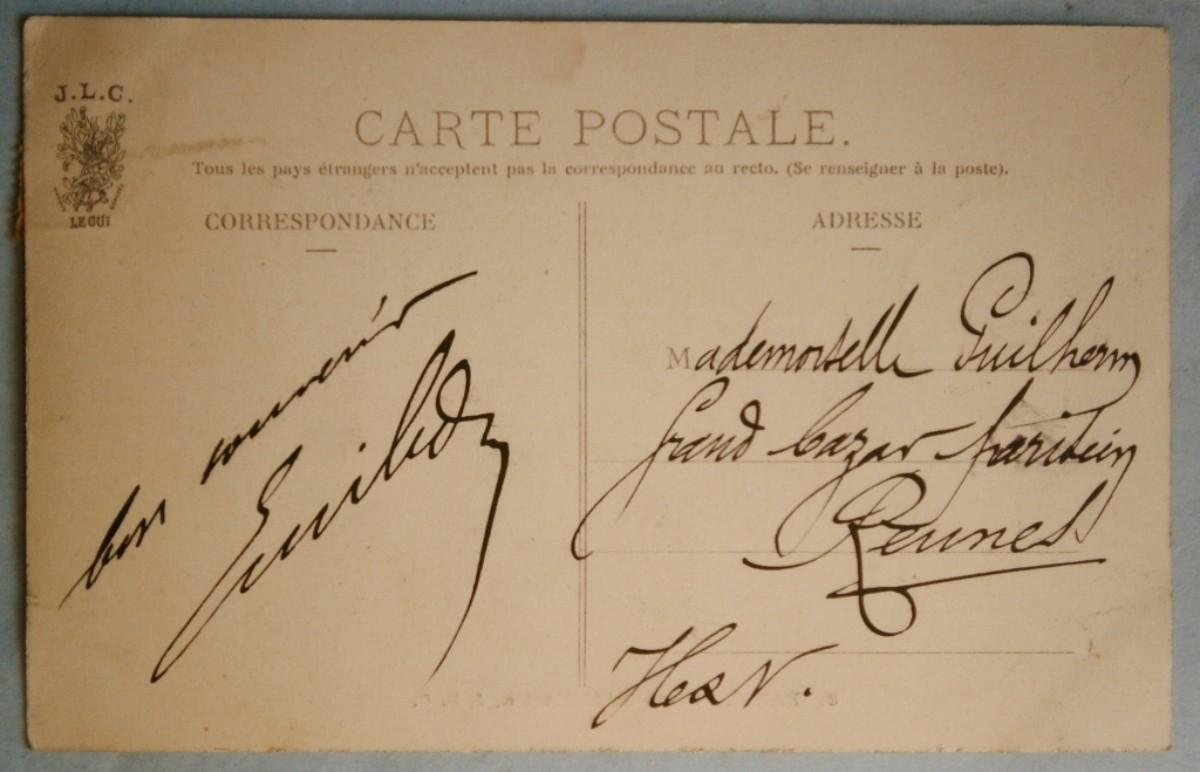 J.L.C.
LE GUI
CARTE POSTALE.
Tous les pays étrangers n'acceptent pas la correspondance au recto. (Se renseigner à la poste).
CORRESPONDANCE
bon souvenir
ADRESSE
Mademoiselle Guilherm
Grand bazar parisien
Rennes